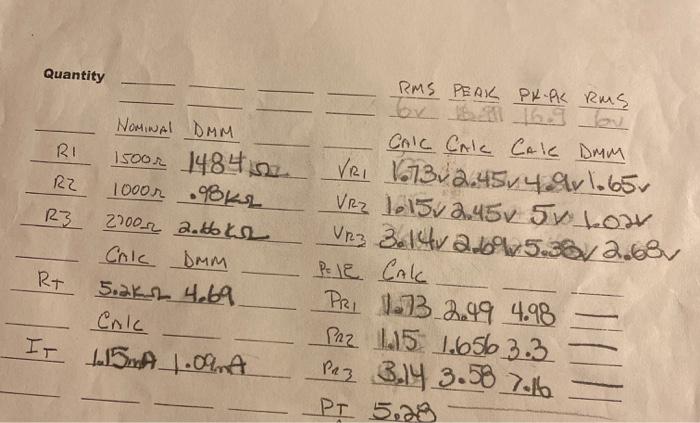 Quantity
RMS PEAK PK-PK RMS
6v 16.9 6v
NOMINAL DMM
CALC CALC CALC DMM
R1 1500Ω 1484Ω VR1 1.73v 2.45v 4.9v 1.65v
R2 1000Ω .98KΩ VR2 1.15v 2.45v 5v 1.02v
R3 2700Ω 2.66KΩ VR3 3.14v 2.69v 5.38v 2.68v
CALC DMM P=IE CALC
RT 5.2KΩ 4.69 PR1 1.73 2.49 4.98
CALC PR2 1.15 1.656 3.3
IT 1.15mA 1.09mA PR3 3.14 3.58 7.16
PT 5.28